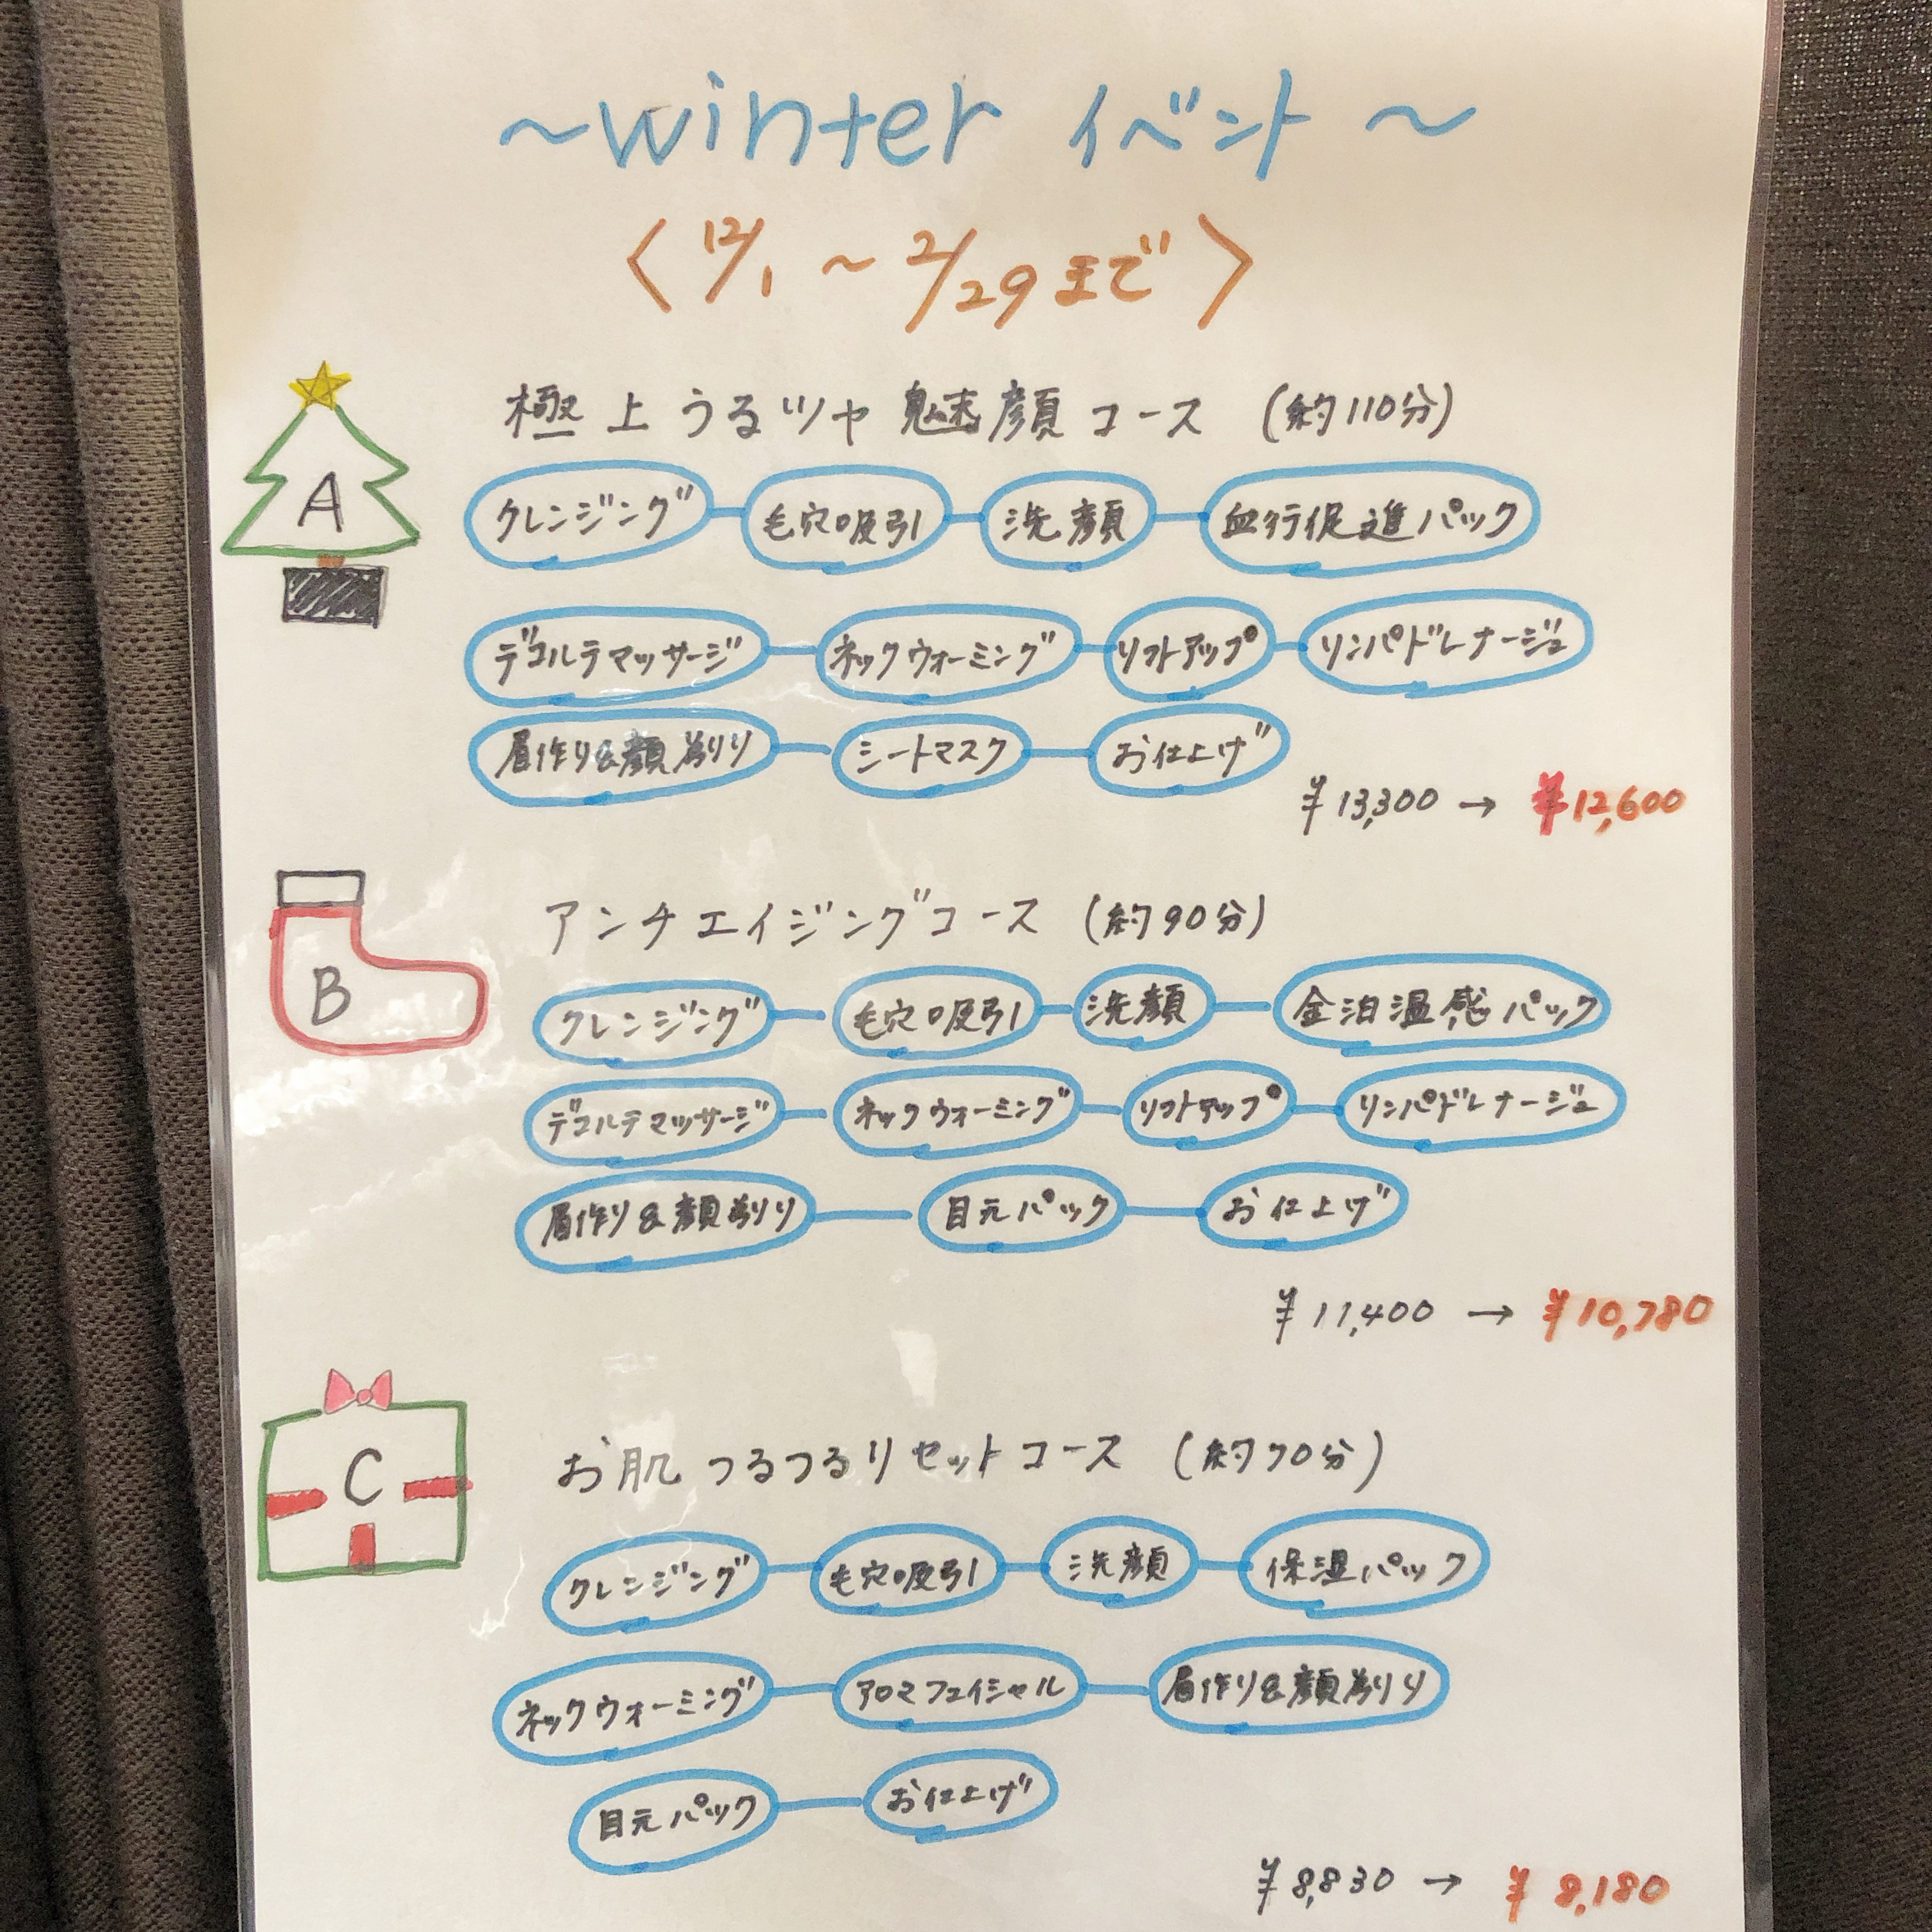 ～winter イベント～
〈12/1～2/29まで〉
A
極上うるツヤ魅顔コース (約110分)
クレンジング 毛穴吸引 洗顔 血行促進パック
デコルテマッサージ ネックウォーミング リフトアップ リンパドレナージュ
眉作り&顔剃り シートマスク お仕上げ
¥13,300 → ¥12,600
B
アンチエイジングコース (約90分)
クレンジング 毛穴吸引 洗顔 金泊温感パック
デコルテマッサージ ネックウォーミング リフトアップ リンパドレナージュ
眉作り&顔剃り 目元パック お仕上げ
¥11,400 → ¥10,780
C
お肌つるつるリセットコース (約70分)
クレンジング 毛穴吸引 洗顔 保湿パック
ネックウォーミング アロマフェイシャル 眉作り&顔剃り
目元パック お仕上げ
¥8,830 → ¥8,180